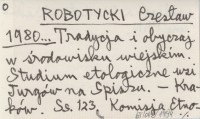 ROBOTYCKI Czesław
1980... Tradycja i obyczaj
w środowisku wiejskim.
Studium etologiczne wsi
Jurgów na Spiszu. – Kra-
ków. Ss. 123. Komisja Etno-